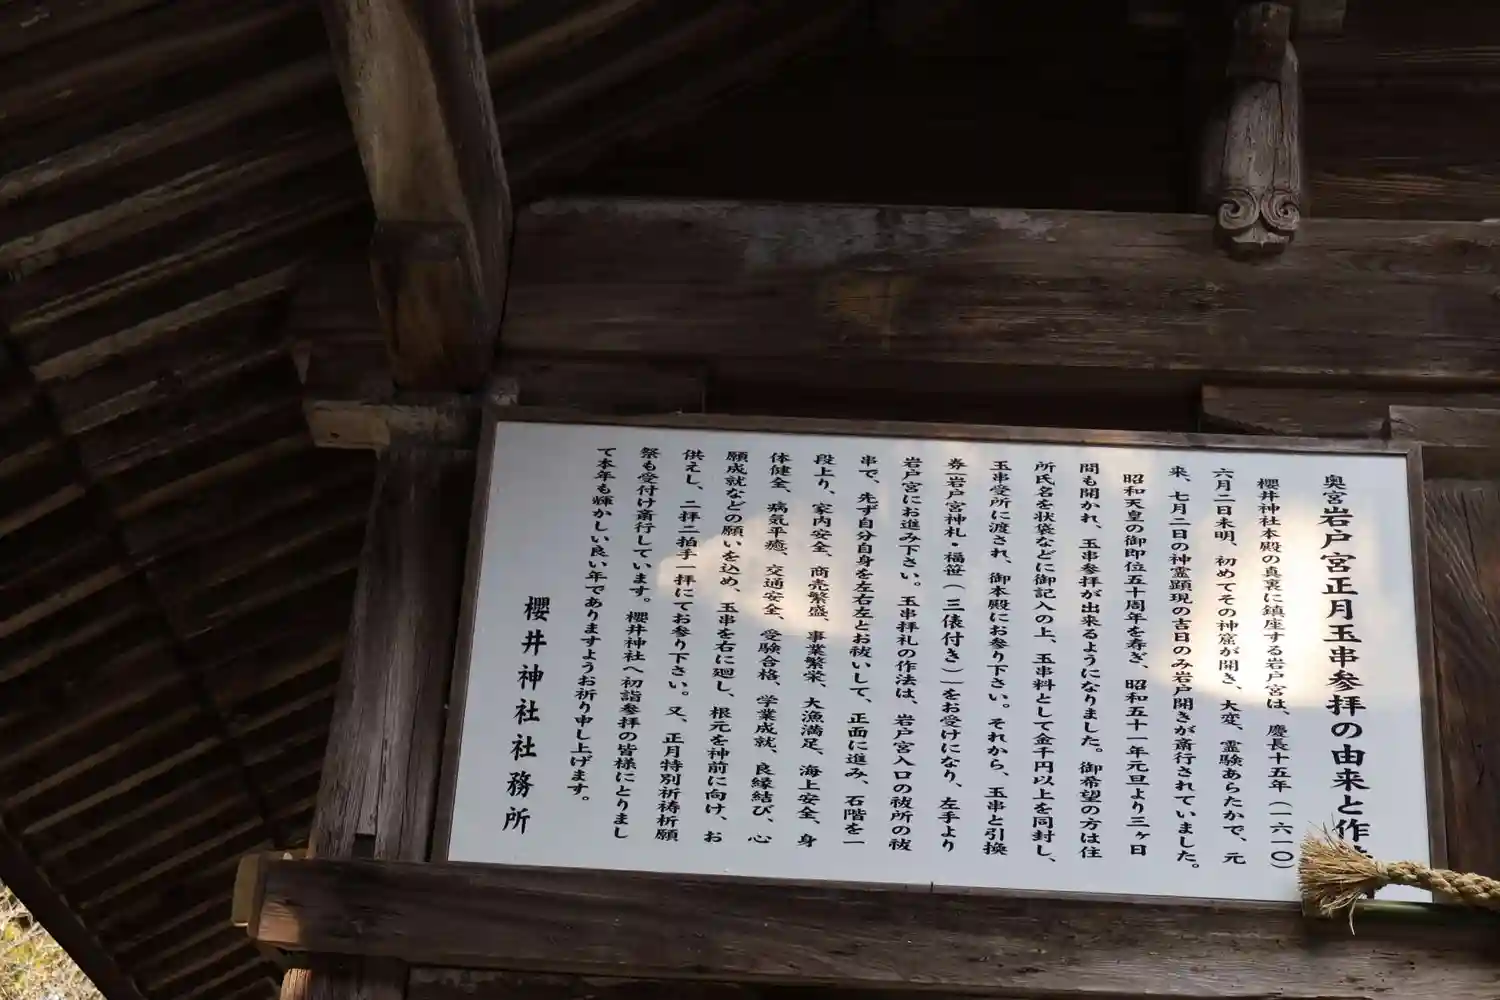 奥宮岩戸宮正月玉串参拝の由来と作
櫻井神社本殿の真裏に鎮座する岩戸宮は、慶長十五年（一六一〇）
六月二日未明、初めてその神窟が開き、大変、霊験あらたかで、元
来、七月二日の神霊顕現の吉日のみ岩戸開きが斎行されていました。
昭和天皇の御即位五十周年を寿ぎ、昭和五十一年元旦より三ヶ日
間も開かれ、玉串参拝が出来るようになりました。御希望の方は住
所氏名を状袋などに御記入の上、玉串料として金千円以上を同封し、
玉串受所に渡され、御本殿にお参り下さい。それから、玉串と引換
券「岩戸宮神札・福笹（三俵付き）」をお受けになり、左手より
岩戸宮にお進み下さい。玉串拝礼の作法は、岩戸宮入口の祓所の祓
串で、先ず自分自身を左右左とお祓いして、正面に進み、石階を一
段上り、家内安全、商売繁盛、事業繁栄、大漁満足、海上安全、身
体健全、病気平癒、交通安全、受験合格、学業成就、良縁結び、心
願成就などの願いを込め、玉串を右に廻し、根元を神前に向け、お
供えし、二拝二拍手一拝にてお参り下さい。又、正月特別祈祷祈願
祭も受付け斎行しています。櫻井神社へ初詣参拝の皆様にとりまし
て本年も輝かしい良い年でありますようお祈り申し上げます。
櫻井神社社務所